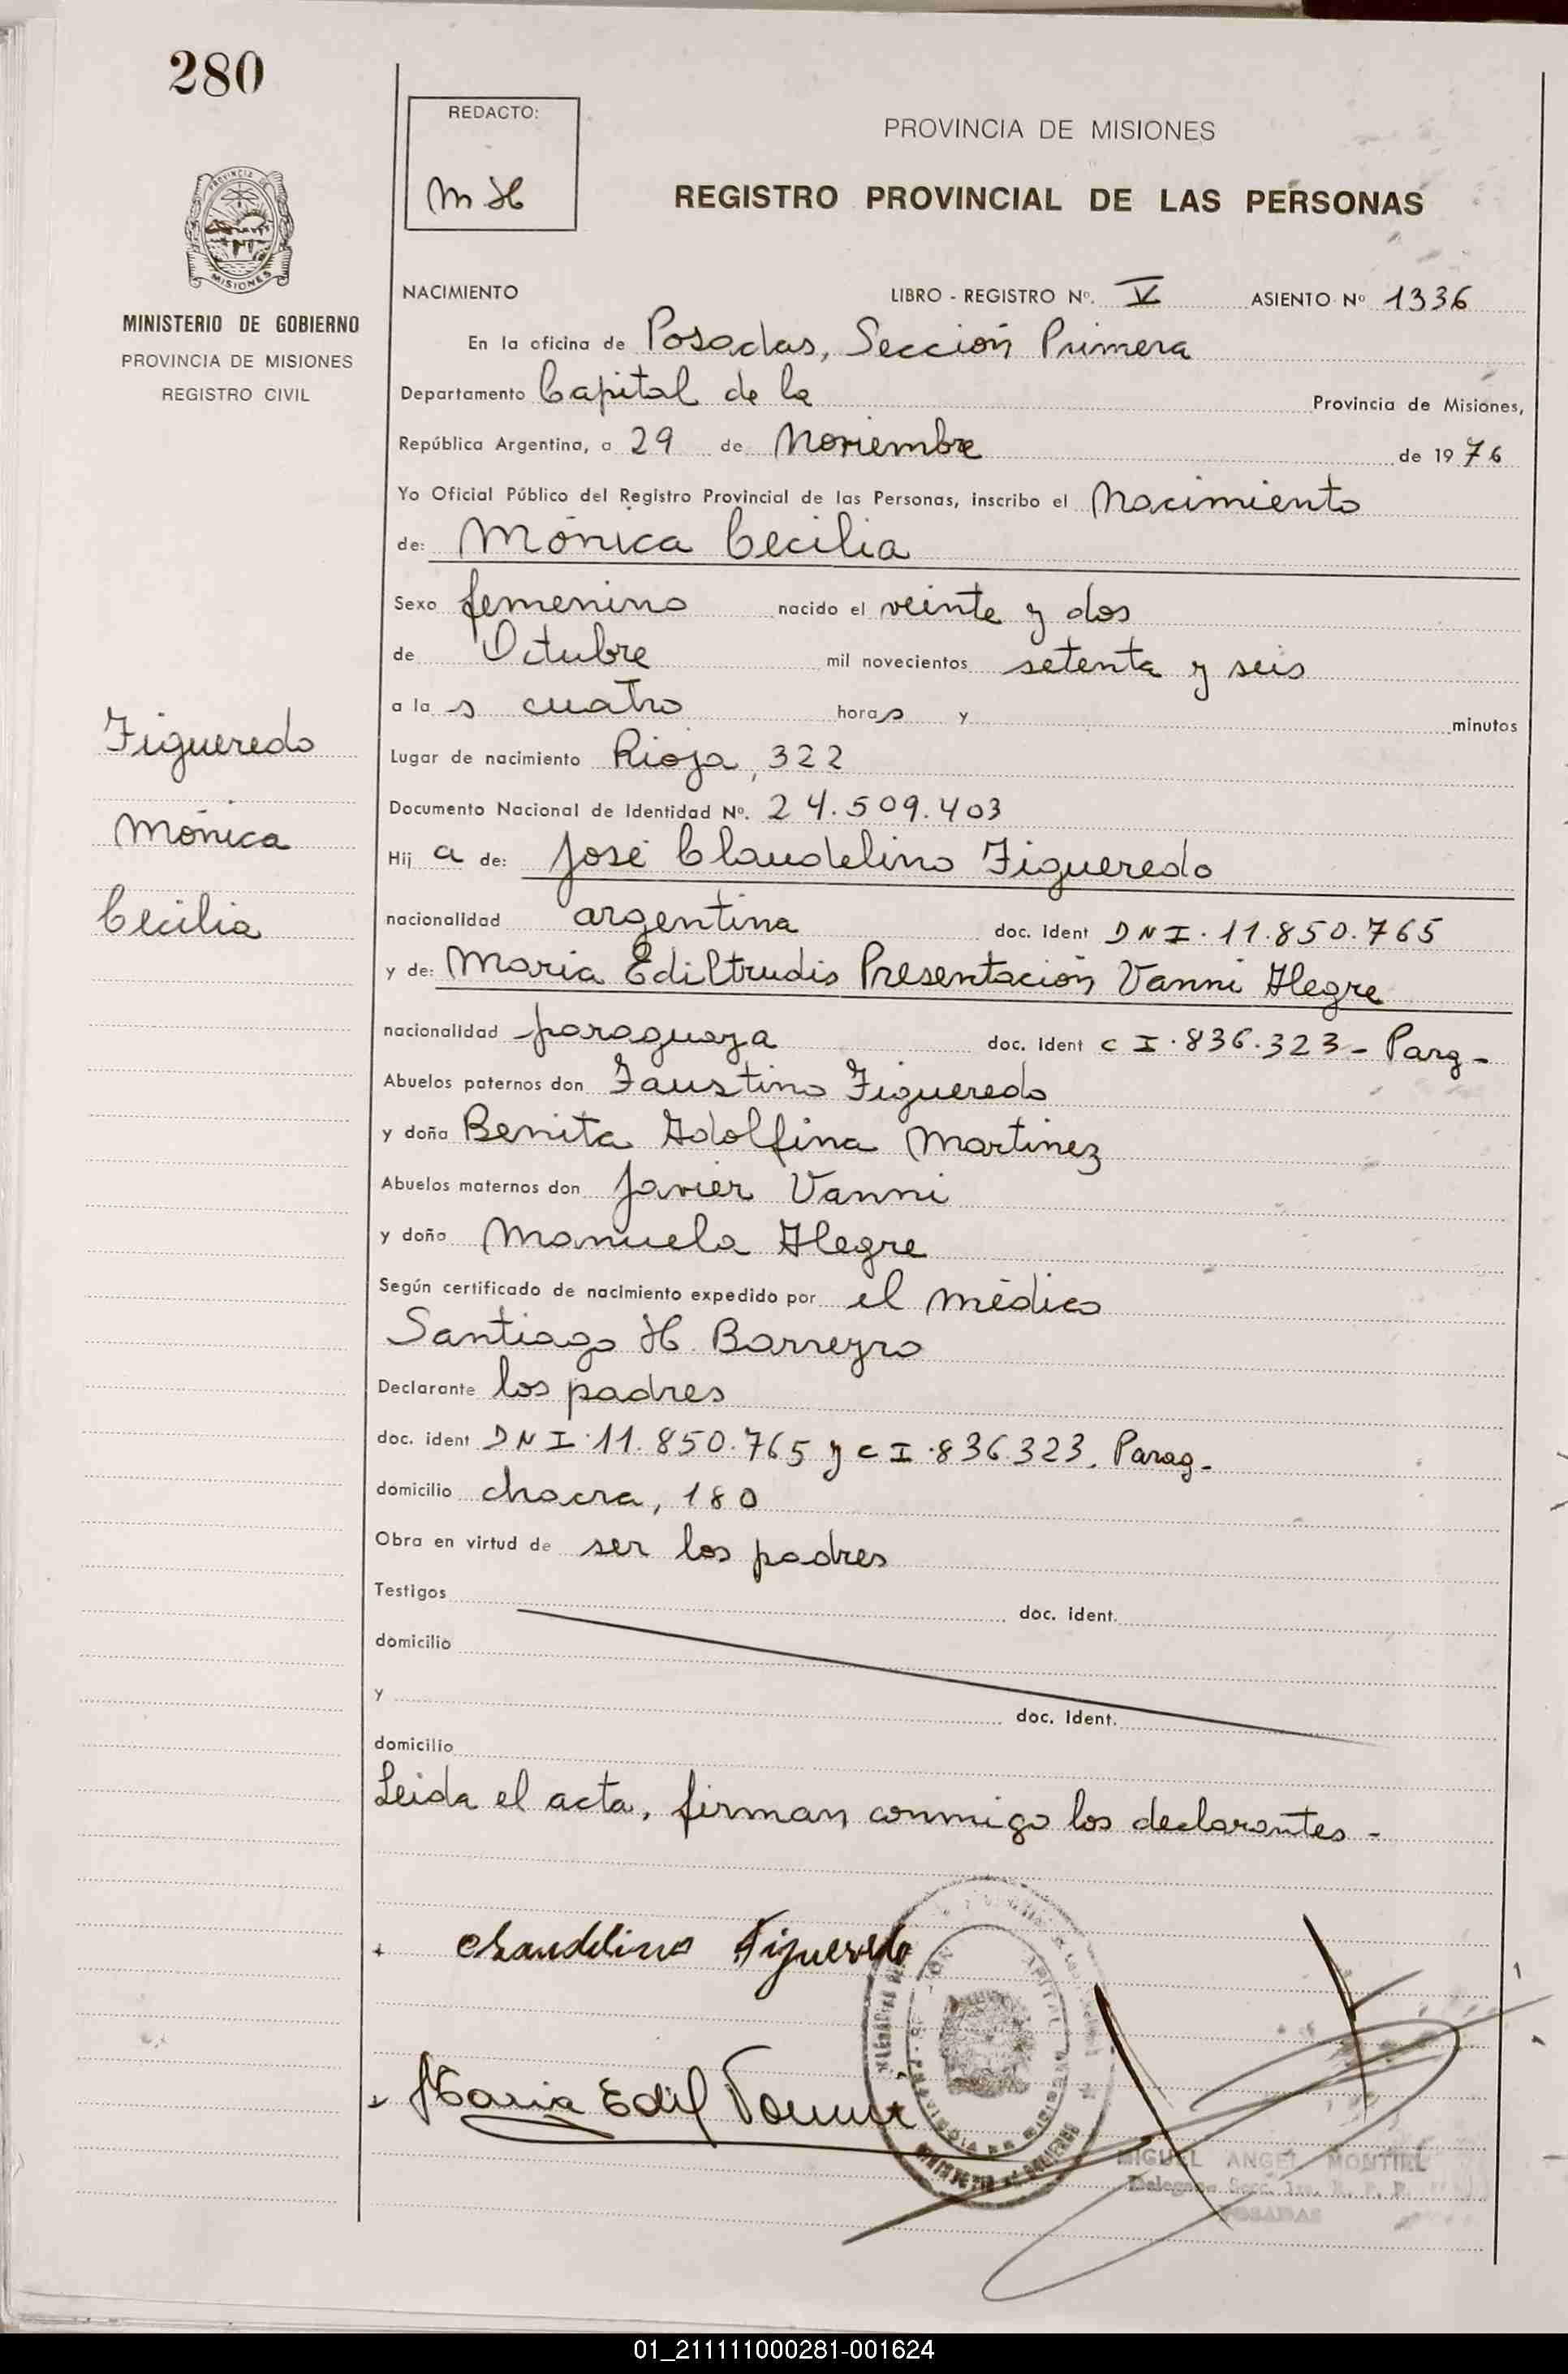 280
REDACTO:
M H
PROVINCIA DE MISIONES
REGISTRO PROVINCIAL DE LAS PERSONAS
PROVINCIA DE
MISIONES
MINISTERIO DE GOBIERNO
PROVINCIA DE MISIONES
REGISTRO CIVIL
NACIMIENTO LIBRO - REGISTRO Nº. V ASIENTO Nº 1336
En la oficina de Posadas, Sección Primera
Departamento Capital de la Provincia de Misiones,
República Argentina, a 29 de Noviembre de 1976
Yo Oficial Público del Registro Provincial de las Personas, inscribo el Nacimiento
de: Mónica Cecilia
Sexo femenino nacido el veinte y dos
de Octubre mil novecientos setenta y seis
a la s cuatro horas y minutos
Figueredo
Mónica
Cecilia
Lugar de nacimiento Rioja, 322
Documento Nacional de Identidad Nº. 24.509.403
Hij a de: José Claudelino Figueredo
nacionalidad argentina doc. ident DNI. 11.850.765
y de: Maria Ediltrudis Presentación Vanni Alegre
nacionalidad paraguaya doc. ident C I. 836.323 - Parg -
Abuelos paternos don Faustino Figueredo
y doña Benita Adolfina Martinez
Abuelos maternos don Javier Vanni
y doña Manuela Alegre
Según certificado de nacimiento expedido por el médico
Santiago H. Barreyro
Declarante los padres
doc. ident DNI. 11.850.765 y C I. 836.323. Parag-
domicilio chacra, 180
Obra en virtud de ser los padres
Testigos doc. ident.
domicilio
y doc. ident.
domicilio
Leida el acta, firman conmigo los declarantes -
Claudelino Figueredo
Maria Edil Vanni
PROVINCIA DE MISIONES
MINISTERIO DE GOBIERNO
MIGUEL ANGEL MONTIEL
Delegado Secc. 1ra. R. P. P.
POSADAS
01_211111000281-001624